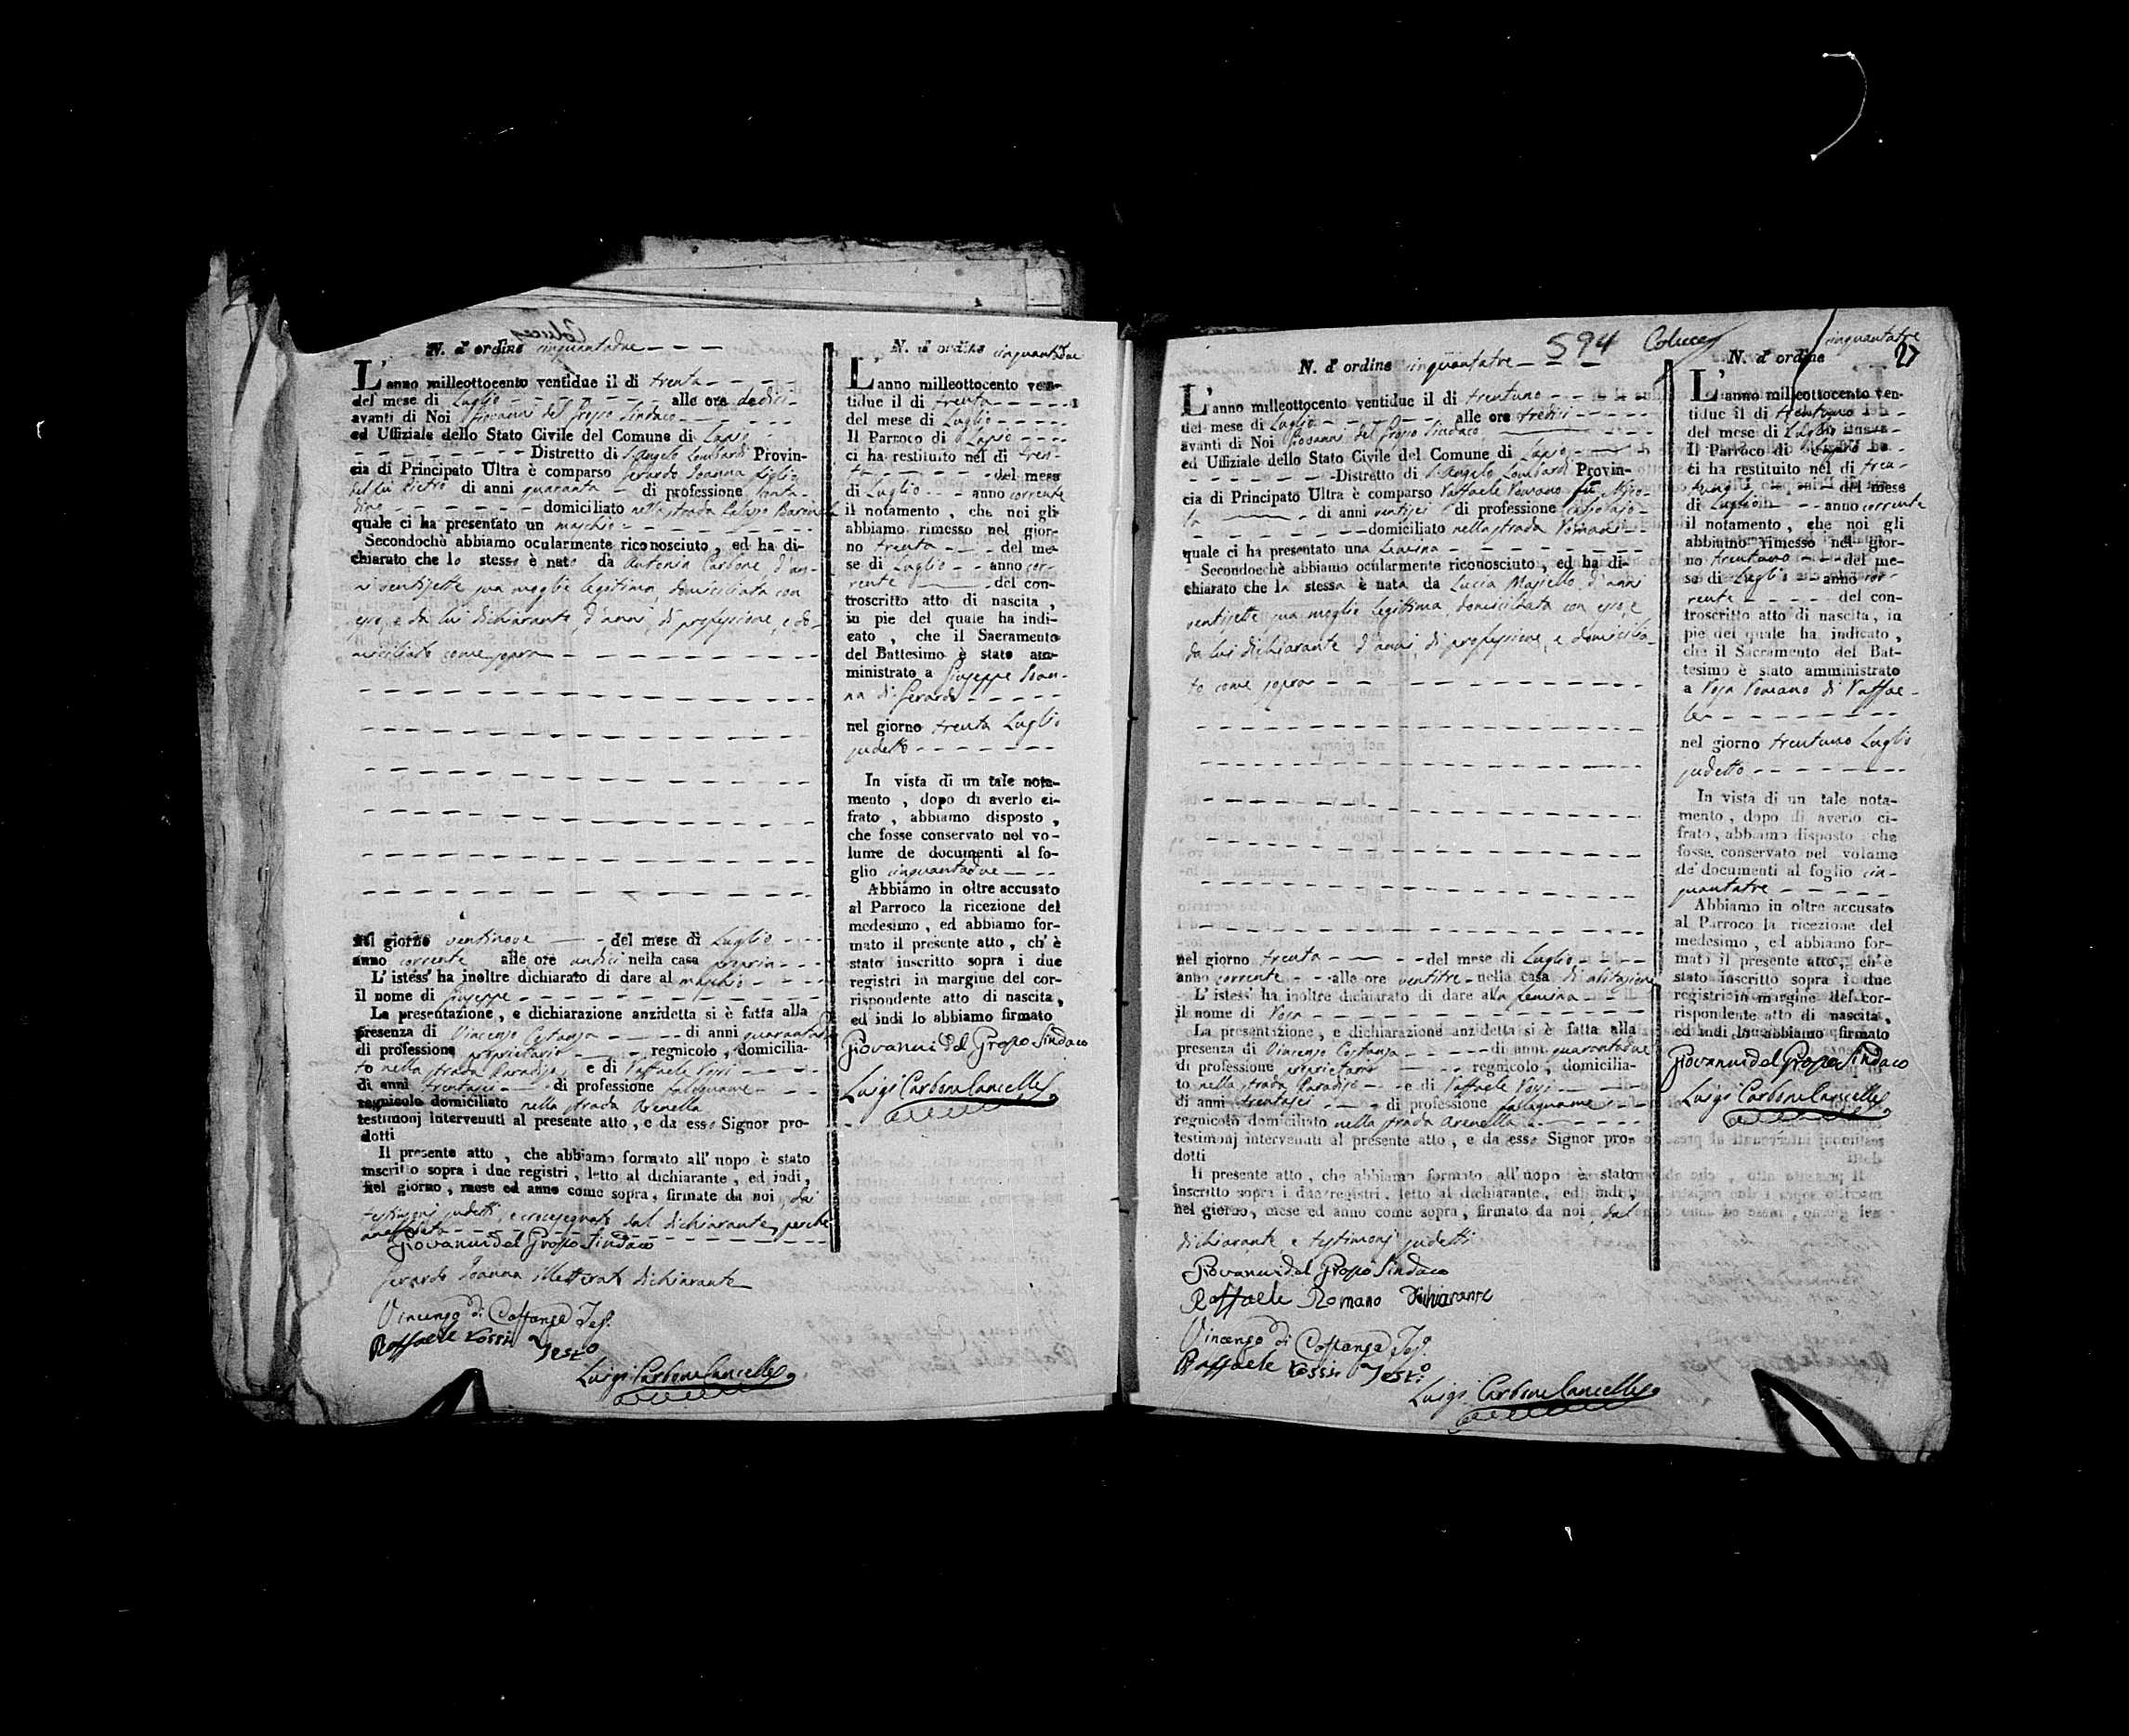 N. d' ordine cinquantadue
L' anno milleottocento ventidue il di trenta
del mese di Luglio alle ore dodici
avanti di Noi Giovanni del Grosso Sindaco
ed Uffiziale dello Stato Civile del Comune di Lapio
Distretto di S. Angelo Lombardi Provin-
cia di Principato Ultra è comparso Gerardo Ioanna figlio
del fu Pietro di anni quaranta di professione conta-
dino domiciliato nella strada
quale ci ha presentato un maschio
Secondochè abbiamo ocularmente riconosciuto, ed ha di-
chiarato che lo stesso è nato da Antonia Carbone d'an-
ni ventisette sua moglie legitima, domiciliata con
esso, e da lui dichiarante, d'anni, di professione, e do-
miciliato come sopra
nel giorno ventinove del mese di Luglio
anno corrente alle ore undici nella casa propria
L' istess' ha inoltre dichiarato di dare al maschio
il nome di Giuseppe
La presentazione, e dichiarazione anzidetta si è fatta alla
presenza di Vincenzo Costanza di anni quarantadue
di professione proprietario regnicolo, domicilia-
to nella strada Paradiso, e di Raffaele Rossi
di anni trentasei di professione falegname
regnicolo domiciliato nella strada Arenella
testimonj intervenuti al presente atto, e da esso Signor pro-
dotti
Il presente atto, che abbiamo formato all' uopo è stato
inscritto sopra i due registri, letto al dichiarante, ed indi,
nel giorno, mese ed anno come sopra, firmate da noi, dai
testimonj sudetti, e crocesegnato dal dichiarante, perchè
analfabeta
Giovanni del Grosso Sindaco
Gerardo Ioanna illetterato dichiarante
Vincenzo di Costanza Tes.º
Raffaele Rossi Testº
Luigi Carbone Cancellº
N. d' ordine cinquantadue
L' anno milleottocento ven-
tidue il di trenta
del mese di Luglio
Il Parroco di Lapio
ci ha restituito nel di tren-
ta del mese
di Luglio anno corrente
il notamento, che noi gli
abbiamo rimesso nel gior-
no trenta del me-
se di Luglio anno cor-
rente del con-
troscritto atto di nascita,
in pie del quale ha indi-
cato, che il Sacramento
del Battesimo è stato am-
ministrato a Giuseppe Ioan-
na di Gerardo
nel giorno trenta Luglio
sudetto
In vista di un tale nota-
mento, dopo di averlo ci-
frato, abbiamo disposto,
che fosse conservato nel vo-
lume de documenti al fo-
glio cinquantadue
Abbiamo in oltre accusato
al Parroco la ricezione del
medesimo, ed abbiamo for-
mato il presente atto, ch' è
stato inscritto sopra i due
registri in margine del cor-
rispondente atto di nascita,
ed indi lo abbiamo firmato
Giovanni del Grosso Sindaco
Luigi Carbone Cancellº
594
N. d' ordine cinquantatre
L' anno milleottocento ventidue il di trentuno
del mese di Luglio alle ore tredici
avanti di Noi Giovanni del Grosso Sindaco
ed Uffiziale dello Stato Civile del Comune di Lapio
Distretto di S. Angelo Lombardi Provin-
cia di Principato Ultra è comparso Raffaele Romano fu Nico-
la di anni ventisei di professione
domiciliato nella strada Romano
quale ci ha presentato una femina
Secondocchè abbiamo ocularmente riconosciuto, ed ha di-
chiarato che la stessa è nata da Lucia Masiello d'anni
ventisette sua moglie legittima, domiciliata con esso, e
da lui dichiarante d'anni, di professione, e domicilia-
to come sopra
nel giorno trenta del mese di Luglio
anno corrente alle ore ventitre nella casa di abitazione
L' istess' ha inoltre dichiarato di dare alla femina
il nome di Rosa
La presentazione, e dichiarazione anzidetta si è fatta alla
presenza di Vincenzo Costanza di anni quarantadue
di professione proprietario regnicolo, domicilia-
to nella strada Paradiso e di Raffaele Rossi
di anni trentasei di professione falegname
regnicolo domiciliato nella strada Arenella
testimonj intervenuti al presente atto, e da esso Signor pro-
dotti
Il presente atto, che abbiamo formato all' uopo è stato
inscritto sopra i due registri, letto al dichiarante, ed indi,
nel giorno, mese ed anno come sopra, firmato da noi, dal
dichiarante e testimonj sudetti
Giovanni del Grosso Sindaco
Raffaele Romano Dichiarante
Vincenzo di Costanza Tes.º
Raffaele Rossi Testº
Luigi Carbone Cancellº
cinquantatre
N. d' ordine 27
L' anno milleottocento ven-
tidue il di trentuno
del mese di Luglio
Il Parroco di Lapio
ci ha restituito nel di tren-
tuno del mese
di Luglio anno corrente
il notamento, che noi gli
abbiamo rimesso nel gior-
no trentuno del me-
se di Luglio anno cor-
rente del con-
troscritto atto di nascita, in
pie del quale ha indicato,
che il Sacramento del Bat-
tesimo è stato amministrato
a Rosa Romano di Raffae-
le
nel giorno trentuno Luglio
sudetto
In vista di un tale nota-
mento, dopo di averlo ci-
frato, abbiamo disposto che
fosse conservato nel volume
de' documenti al foglio cin-
quantatre
Abbiamo in oltre accusato
al Parroco la ricezione del
medesimo, ed abbiamo for-
mato il presente atto, ch' è
stato inscritto sopra i due
registri in margine del cor-
rispondente atto di nascita,
ed indi lo abbiamo firmato
Giovanni del Grosso Sindaco
Luigi Carbone Cancellº